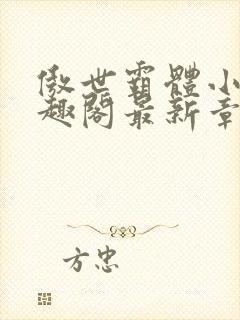 傲世霸體小
趣閣最新章
方忠